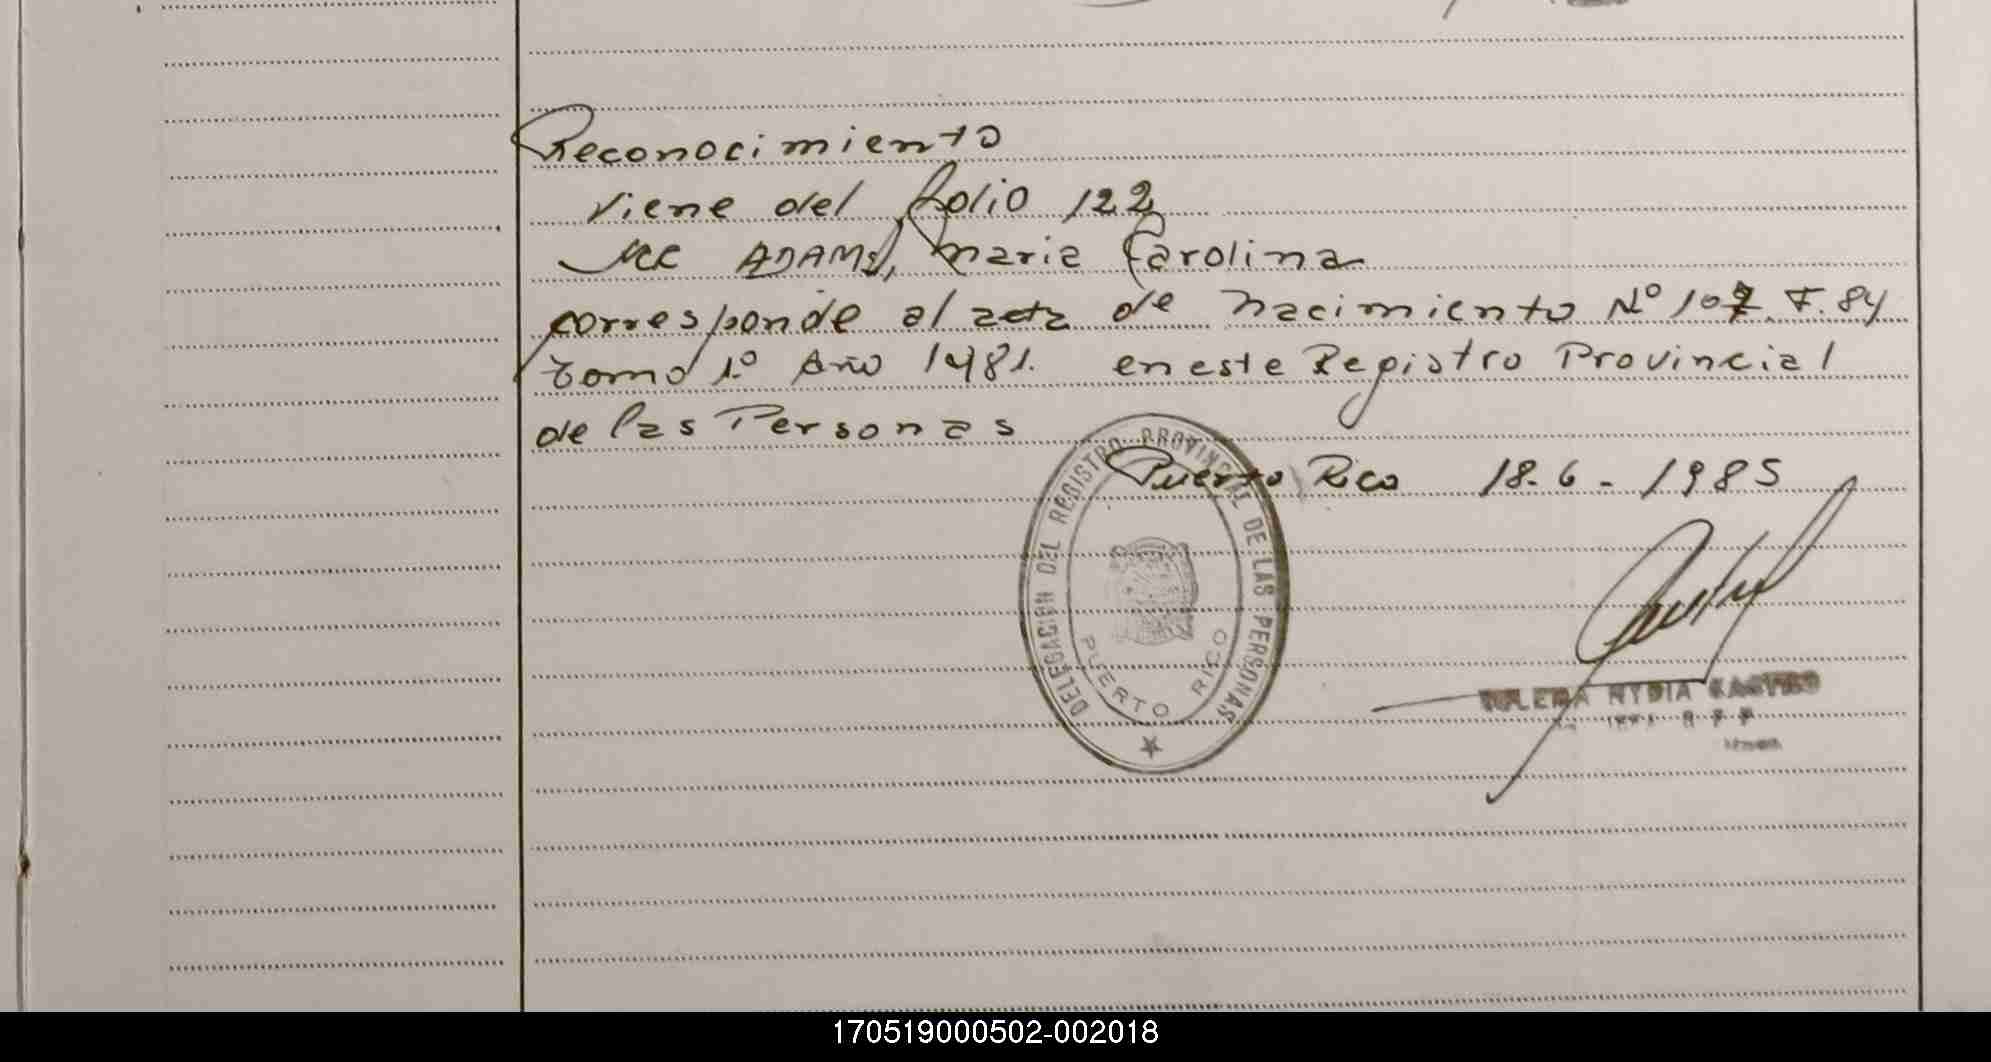 Reconocimiento
Viene del folio 122
Mc ADAMS, Maria Carolina
corresponde al acta de Nacimiento Nº 107 F. 84
tomo 1º Año 1981. en este Registro Provincial
de las Personas
Puerto Rico 18-6-1985
DELEGACION DEL REGISTRO PROVINCIAL DE LAS PERSONAS
PUERTO RICO
NYDIA
170519000502-002018